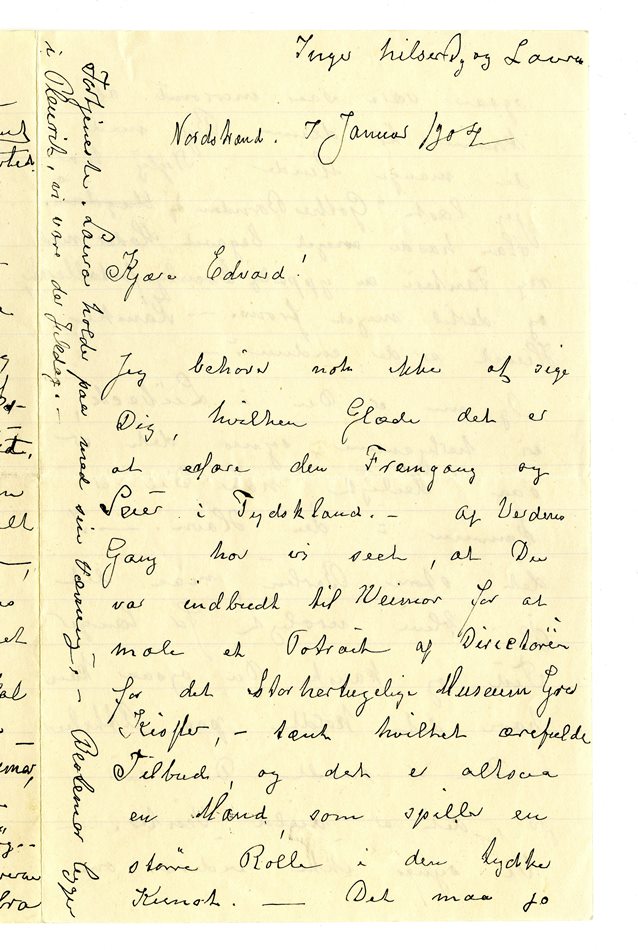 Inger hilser Dig og Laura
Nordstrand. 7 Januar 1904
Kjære Edvard!
Jeg behøver nok ikke at sige
Dig, hvilken Glæde det er
at erfare den Fremgang og
Seier i Tydskland. – Af Verdens
Gang har vi seet, at Du
var indbudt til Weimar for at
male et Poträit af Directören
for det Storhertugelige Museum Grev
Kessler, – tænk hvilket ærefulde
Tilbud, og det er altsaa
en Mand, som spiller en
större Rolle i den tydske
Kunst. — Det maa jo
Fortjeneste. Laura holder paa med sin Vævning. – Bestemor ligger
i Pleurit, vi vare der Juledag. –